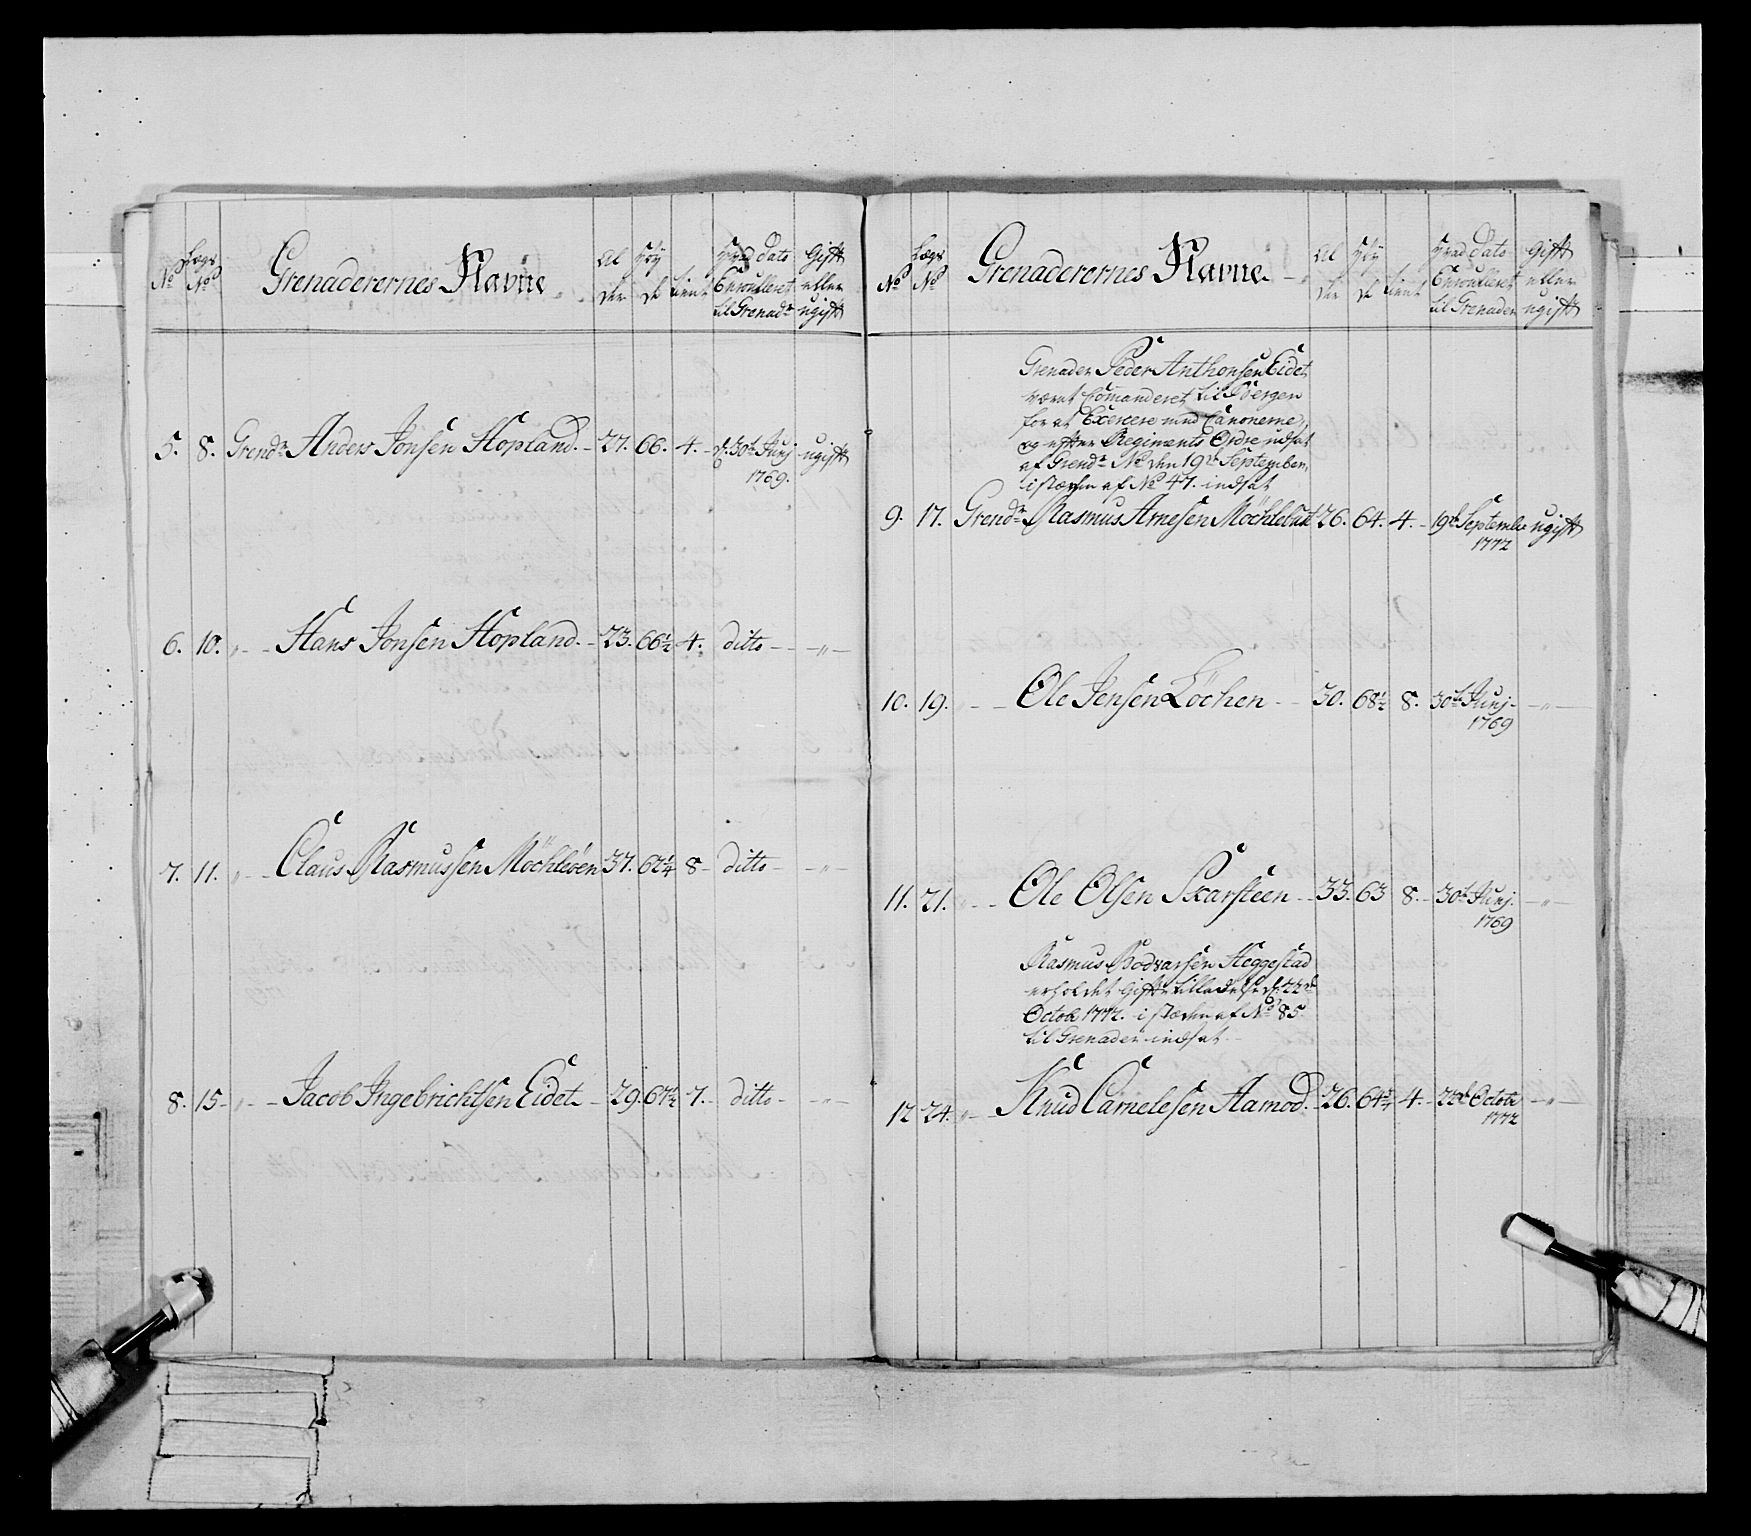 No
Lægs No
Grenaderernes Navne
Al der
Høy de
tient
Hvad Dato Enroulleret til Grenadr
Gift eller ugift
5. 8. Grendr Anders Jonsen Hopland. 27. 66. 4. d. 30t Junj ugift
1769.
6. 10. " Hans Jonsen Hopland. 23. 66½ 4. ditto "
7. 11. " Claus Rasmussen Möchleöen 37. 67¼ 8 ditto "
8. 15 " Jacob Ingebrichtsen Eidet 29. 67½ 7. ditto "
No
Lægs No
Grenaderernes Navne
Al der
Høy de
tient
Hvad Dato Enroulleret til Grenader
Gift eller ugift
Grenader Peder Anthonsen Eidet
været Comanderet til Bergen
for at Exercere med Canonerne,
og efter Regiments Ordre udsat
af Grendr No den 19de September,
i stæden af No 47. indsat
9. 17. Grendr Rasmus Arnesen Möchlebust 26. 64. 4. 19de Septembr ugift
1772
10. 19. Ole Jensen Löchen 30. 68½ 8. 30te Junj. "
1769
11. 21. " Ole Olsen Skarsteen 33. 63 8. 30t Junj. "
1769
Rasmus Bodvarsen Heggestad
erholdet Gifte tilladelse d. 22de
Octobr 1772. i stæden af No 85
til Grenader indsat
12 24. " Knud Carnelesen Aamod. 26. 64¾ 4. 22de Octobr "
1772